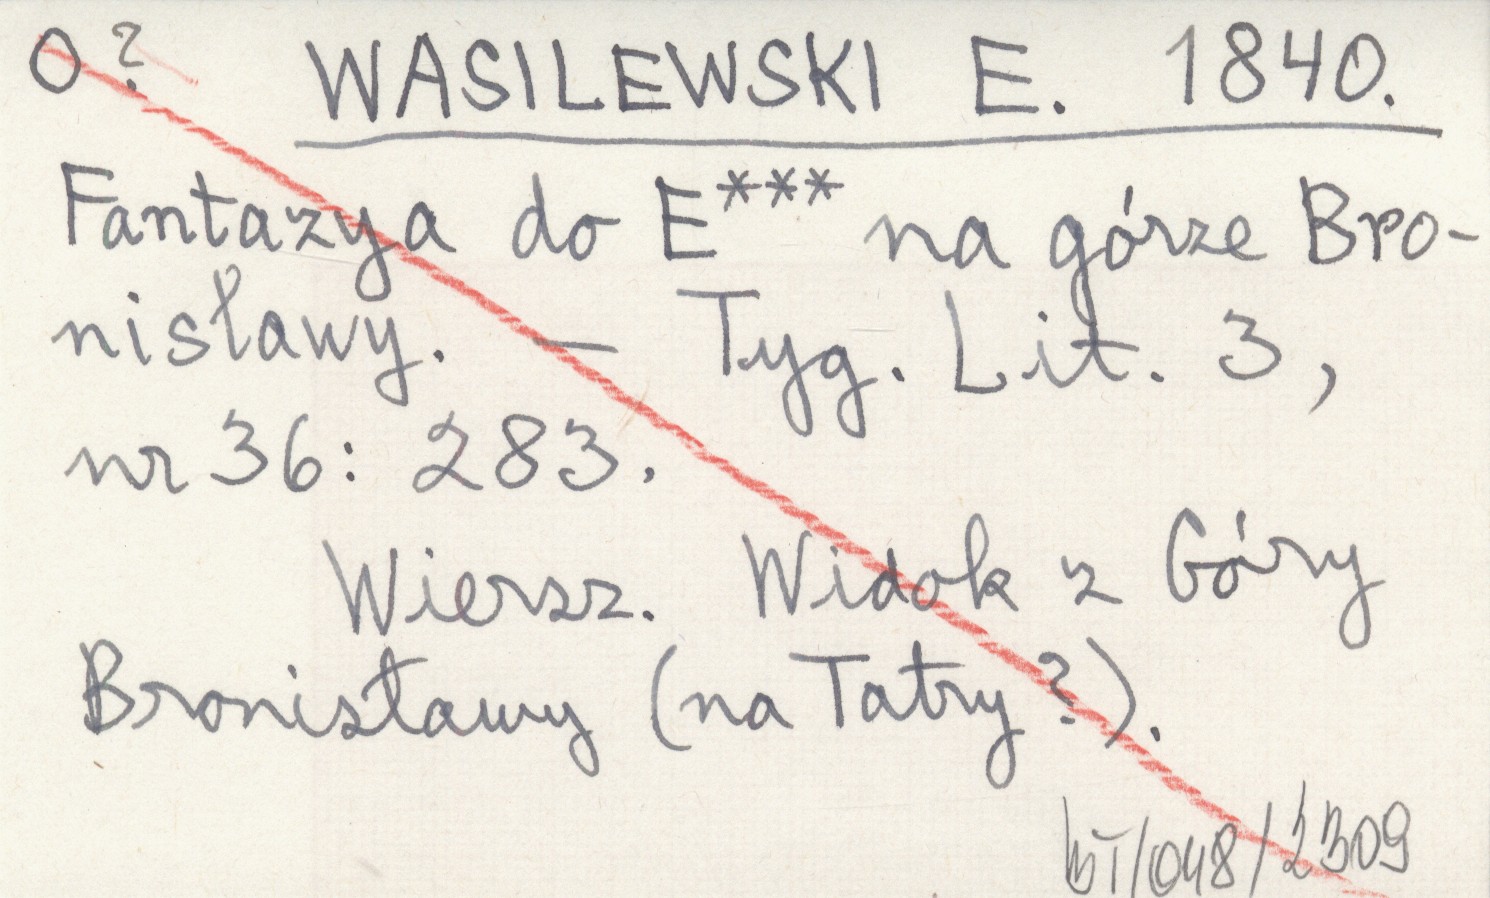 O ? WASILEWSKI E. 1840.
Fantazya do E*** na górze Bro-
nisławy. — Tyg. Lit. 3,
nr 36: 283.
Wiersz. Widok z Góry
Bronisławy (na Tatry?).
bT/048/2309